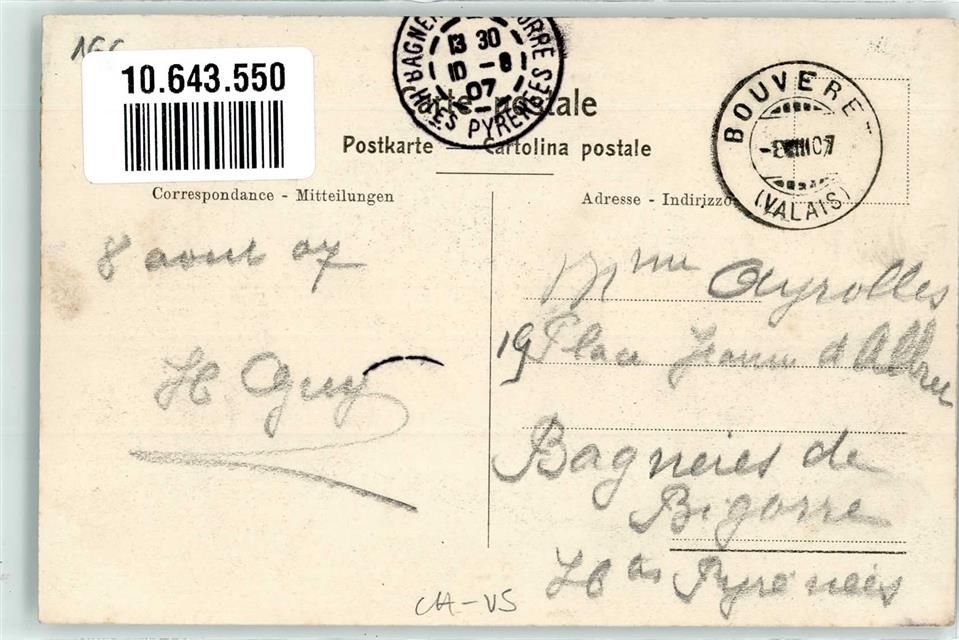 10.643.550
BAGNE ORRE
13 30
10 - 8
07
HTES PYRENEES
Carte postale
Postkarte — Cartolina postale
BOUVERET
-8 VIII 07
(VALAIS)
Correspondance - Mitteilungen
Adresse - Indirizzo
8 aout 07
H. Guy
Mme Ayrolles
19 Place Jeanne d'Albret
Bagneres de
Bigorre
Htes Pyrenées
CH-VS